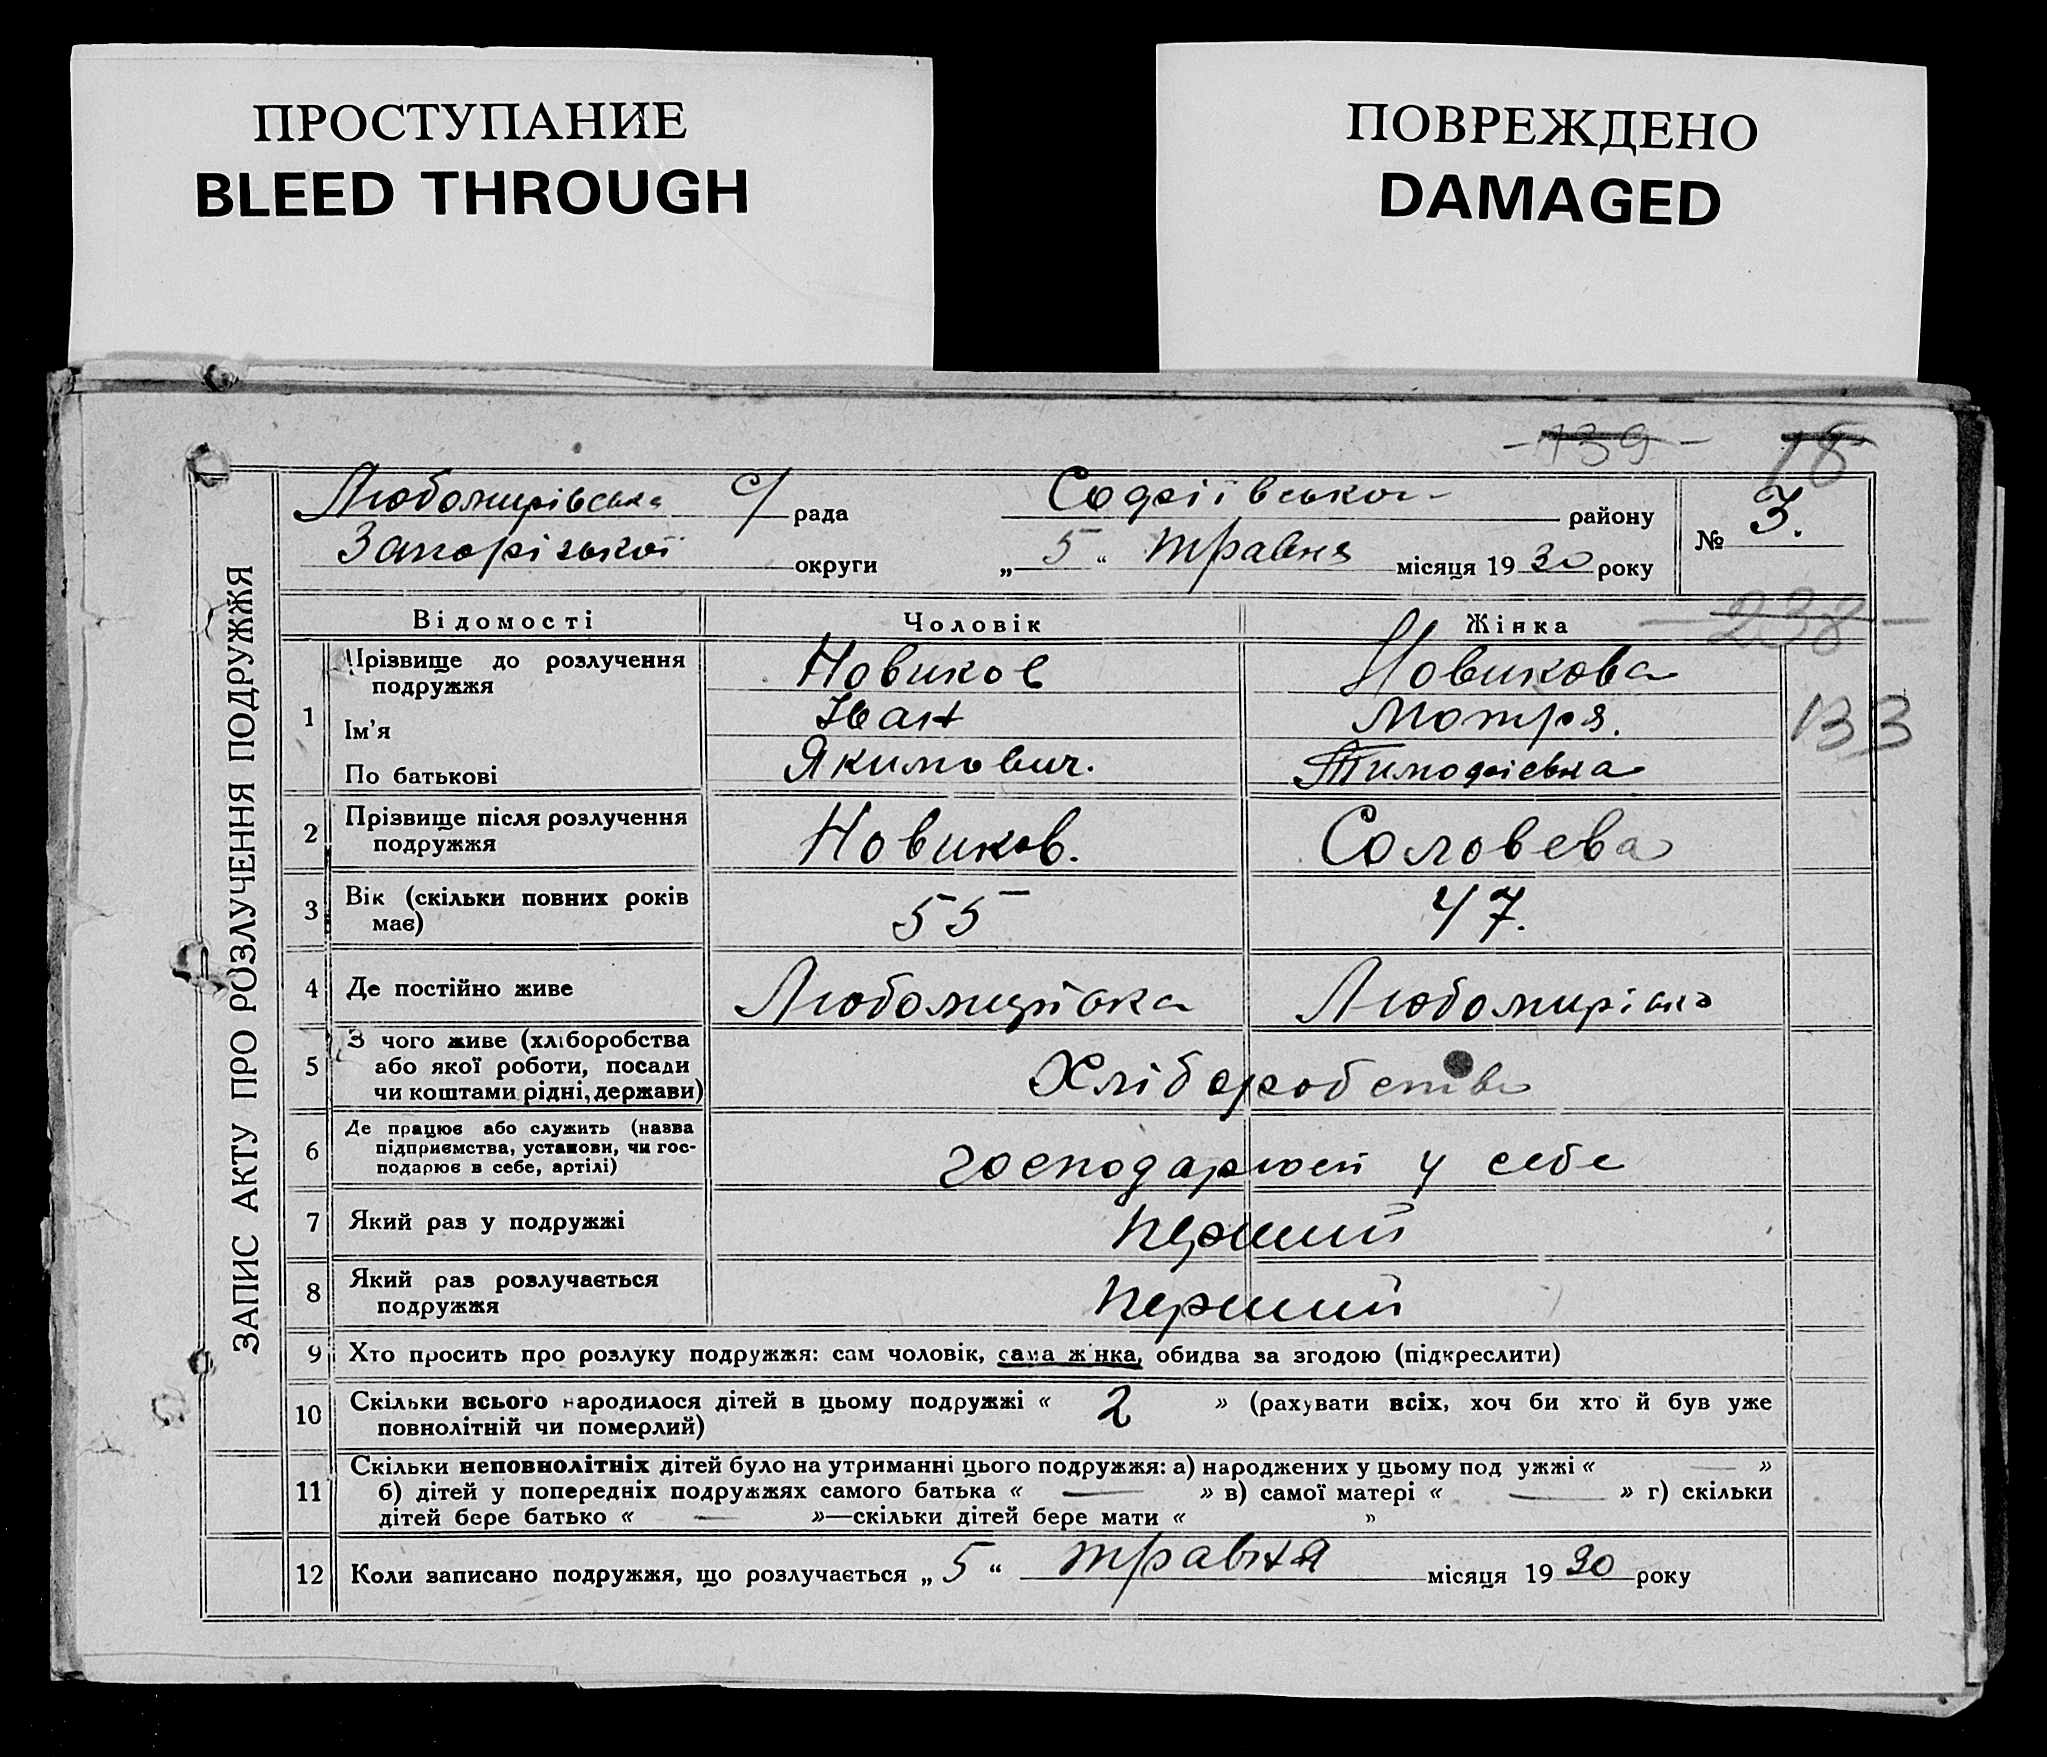 ПРОСТУПАНИЕ
BLEED THROUGH
ПОВРЕЖДЕНО
DAMAGED
-139- 18
ЗАПИС АКТУ ПРО РОЗЛУЧЕННЯ ПОДРУЖЖЯ
Любомирівська с/рада Софіївської району № 3.
Запорізької округи „5“ травня місяця 1930 року
-238-
Відомості Чоловік Жінка
1 Прізвище до розлучення подружжя Новиков Новикова
133
Ім'я Іван Мотря.
По батькові Якимович. Тимофієвна
2 Прізвище після розлучення
подружжя Новиков. Соловева
3 Вік (скільки повних років
має) 55 47.
4 Де постійно живе Любомирівка Любомирівка
5 З чого живе (хліборобства
або якої роботи, посади
чи коштами рідні, держави) Хліборобства
6 Де працює або служить (назва
підприємства, установи, чи гос-
подарює в себе, артілі) господарюєт у себе
7 Який раз у подружжі перший
8 Який раз розлучається
подружжя перший
9 Хто просить про розлуку подружжя: сам чоловік, сама жінка, обидва за згодою (підкреслити)
10 Скільки всього народилося дітей в цьому подружжі « 2 » (рахувати всіх, хоч би хто й був уже
повнолітній чи померлий)
11 Скільки неповнолітніх дітей було на утриманні цього подружжя: а) народжених у цьому подружжі « — »
б) дітей у попередніх подружжях самого батька « — » в) самої матері « — » г) скільки
дітей бере батько « — »—скільки дітей бере мати « »
12 Коли записано подружжя, що розлучається „5“ травня місяця 1930 року